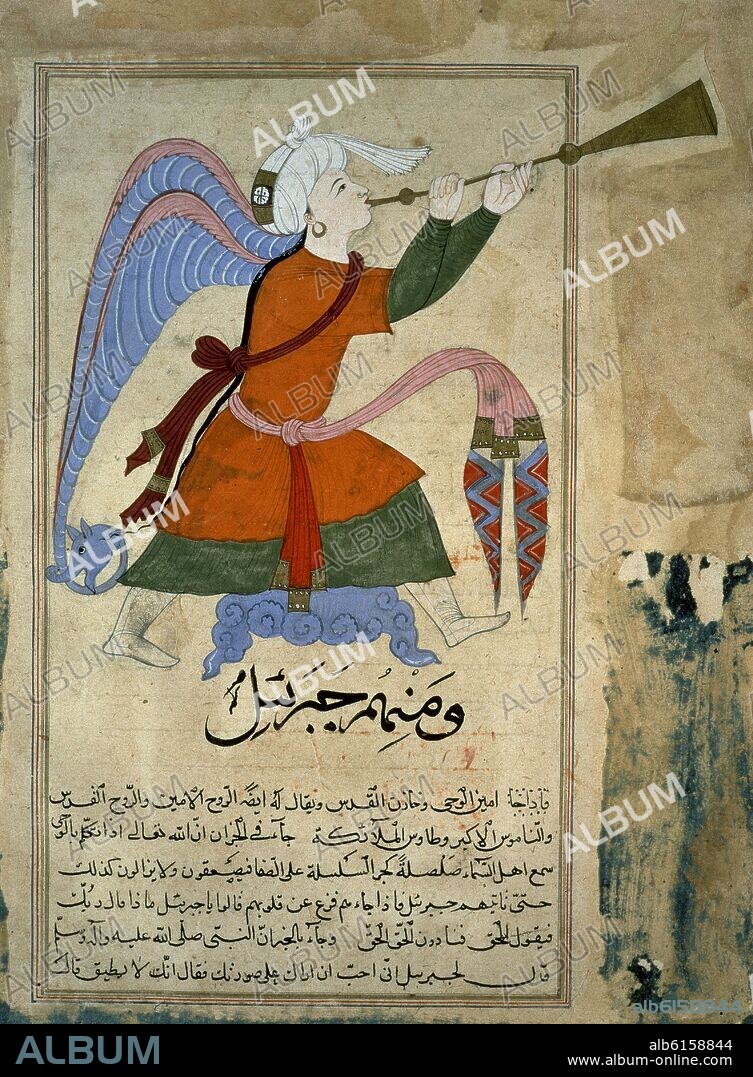 ومنهم جبرئيل
امين الوحى وخازن القدس ويقال له ايضا الروح الامين والروح القدس
والناموس الاكبر وطاوس الملآئكة جآء فى الخبر ان الله تعالى اذا تكلم بالوحى
سمع اهل السمآء صلصلة كجر السلسلة على الصفا فيصعقون ولا يزالون كذلك
حتى ياتيهم جبرئيل فاذا جاءهم فزع عن قلوبهم قالوا يا جبرئيل ماذا قال ربك
فيقول الحق فينادون الحق الحق وجآء بالخبر ان النبى صلى الله عليه وآله وسلم
قال لجبرئيل انى احب ان اراك على صورتك فقال انك لا تطيق قال
ALBUM
alb6158844
ALBUM
alb6158844
www.album-online.com